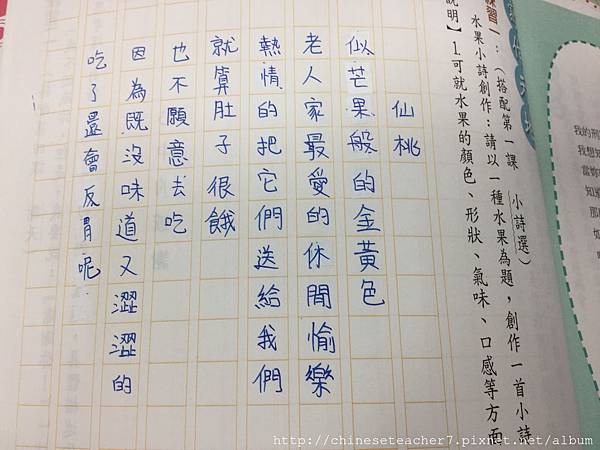 練習一：（搭配第一課　小詩選）
水果小詩創作：請以一種水果為題，創作一首小詩
說明】1.可就水果的顏色、形狀、氣味、口感等方面
仙桃
似芒果般的金黃色
老人家最愛的休閒愉樂
熱情的把它們送給我們
就算肚子很餓
也不願意去吃
因為既沒味道又澀澀的
吃了還會反胃呢
我的
我想
當妳
http://chineseteacher7.pixnet.net/album